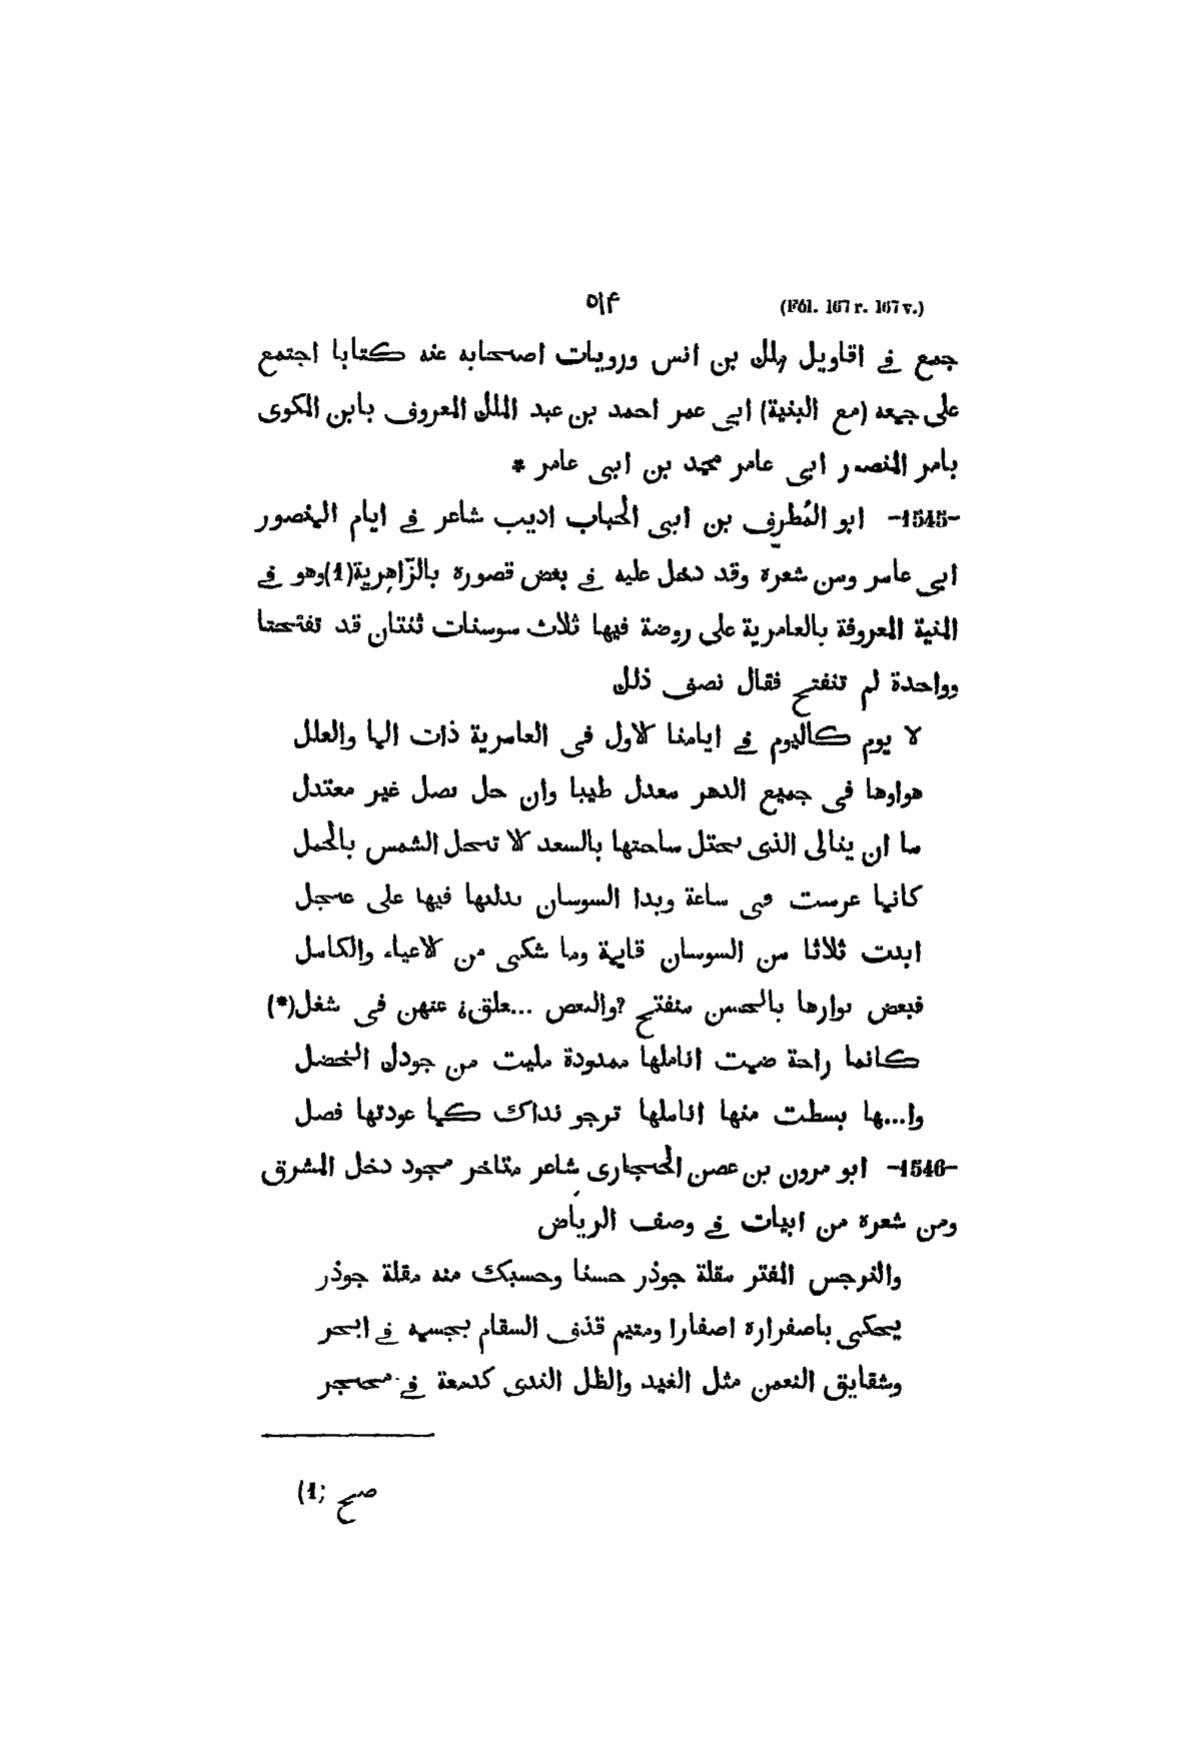 (Fól. 167 r. 167 v.) ٥١٤
جمع في اقاويل ملك بن انس ورويات اصحابه عنه كتابا اجتمع
على جميعه (مع البنية) ابي عمر احمد بن عبد الملك المعروف بابن المكوى
بامر المنصر ابى عامر محمد بن ابى عامر *
-1545- ابو المُطرِّف بن ابى الحباب اديب شاعر في ايام المنصور
ابى عامر ومن شعرة وقد دخل عليه في بعض قصورة بالزّاهِرية(1)وهو في
المنية المعروفة بالعامرية على روضة فيها ثلاث سوسنات ثنتان قد تفتحتا
وواحدة لم تنفتح فقال نصف ذلك
لا يوم كاليوم في ايامنا كلاول فى العامرية ذات الما والعلل
هواوها فى جميع الدهر معدل طيبا وان حل فصل غير معتدل
ما ان ينالى الذى يحتل ساحتها بالسعد كلا تحل الشمس بالحمل
كانها عرست فى ساعة وبدا السوسان فيها على عجل
ابدت ثلاثا من السوسان قايمة وما شكى من كلاعياء والكاسل
فبعض نوارها بالحسن منفتح ?والبعص ...علق¿ عنهن فى شغل(*)
كانما راحة ضمت اناملها ممدودة مليت من جودك الخضل
وا...ها بسطت منها اناملها ترجو نداك كما عودتها فصل
-1546- ابو مرون بن عصن الحجارى شاعر متاخر مجود دخل المشرق
ومن شعرة من ابيات في وصف الرياض
والنرجس المفتر مقلة جوذر حسنا وحسبك منه مقلة جوذر
يحكى باصفرارة اصفارا ومتيم قذف السقام بجسمه في ابحر
وشقايق النعمن مثل الغيد والظل الندى كدمعة في محجر
(1) صح